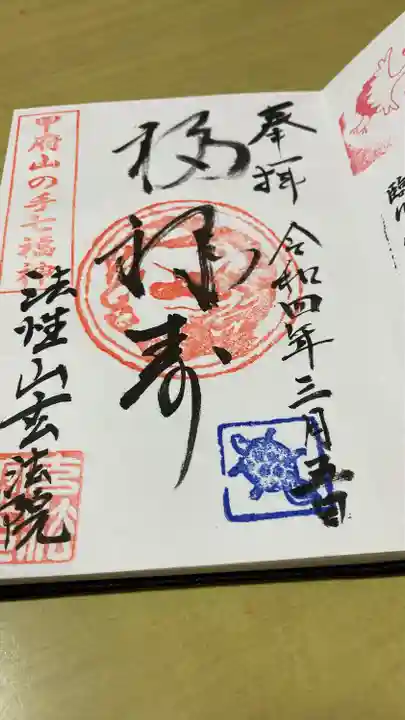 奉拝
令和四年三月五日
福禄寿
甲府山の手七福神
法性山玄法院